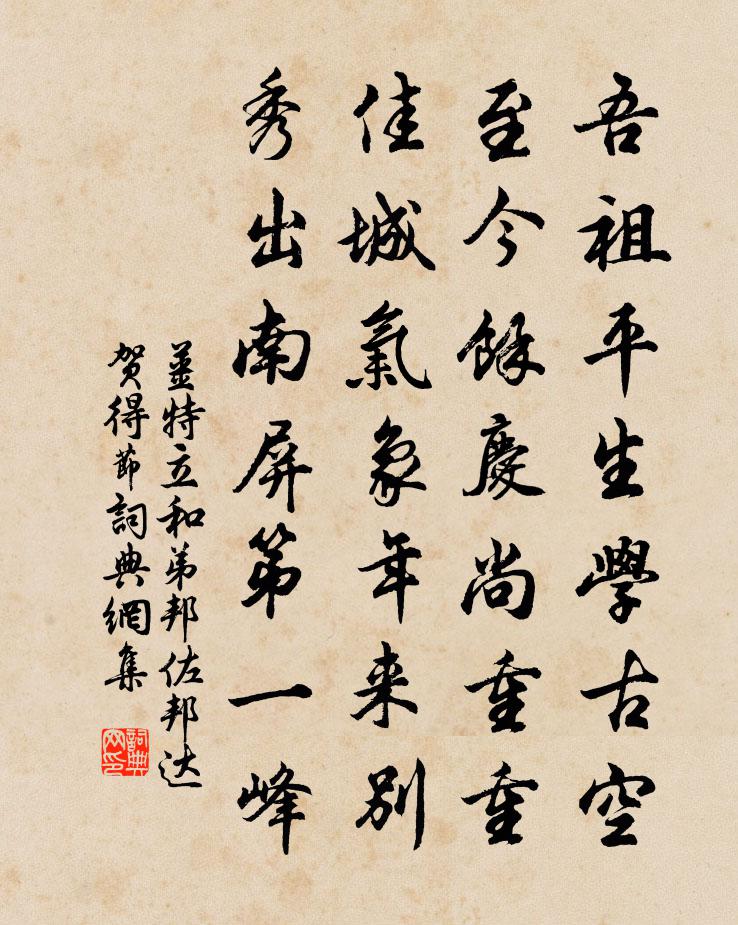 吾祖平生學古空
至今餘慶尚重重
佳城氣象年来別
秀出南屏第一峰
薑特立和弟邦佐邦达
贺得節詞典網集
詞典网印